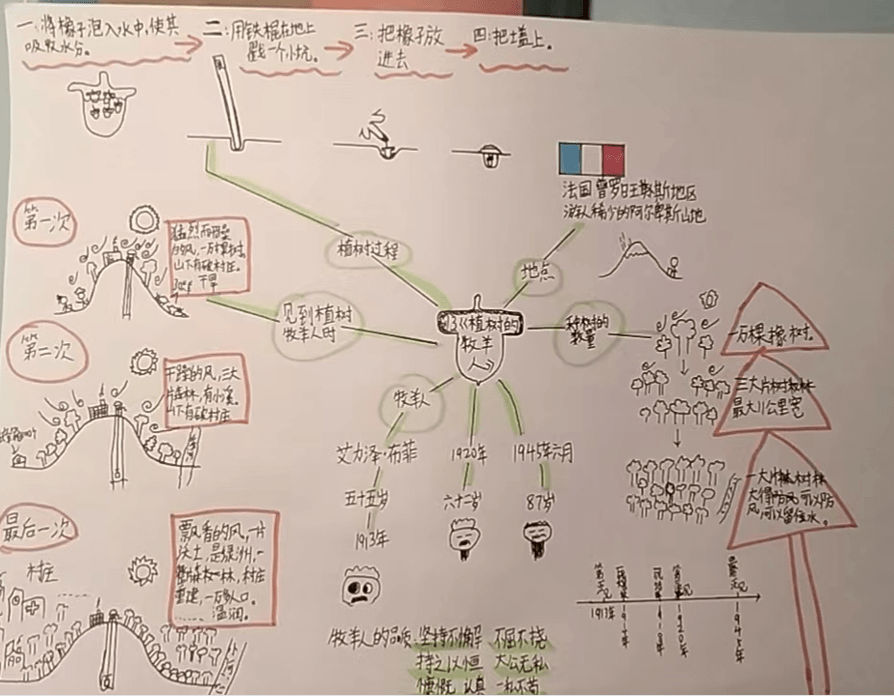 一:将橡子泡入水中,使其
吸收水分。
二:用铁棍在地上
戳一个小坑。
三:把橡子放
进去
四:把土盖上。
法国普罗旺斯地区
游人稀少的阿尔卑斯山地
第一次
的风,一万棵树。
山下有破村庄。
干旱
植树过程
地点
见到植树
牧羊人时
植树的
牧羊
人》
种树的
数量
一万棵橡树。
第二次
干燥的风,三大
片森林,有小溪。
山下有破村庄
三大片树林
最大11公里宽
牧羊人
艾力泽·布菲
1920年
1945年六月
五十五岁
六十二岁
87岁
1913年
一大片树林
风,可以留住水。
最后一次
飘香的风,一片
沃土,是绿洲,一
村庄
重建,一万多人口。
温润。
村庄
1913年
1920年
1945年
牧羊人的品质:坚持不懈 不屈不挠
持之以恒 大公无私
慷慨 认真